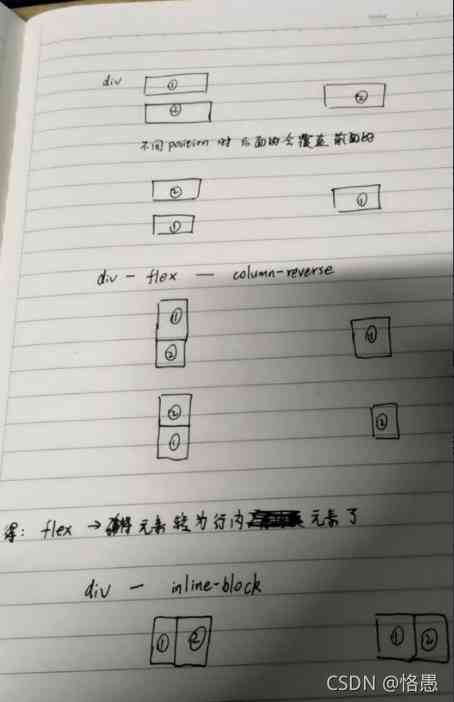 div ① ②
②
不同position时后面的会覆盖前面的
② ①
①
div - flex — column-reverse
① ①
②
② ②
①
得: flex → 元素转为行内 元素了
div — inline-block
① ② ① ②
CSDN @恪愚